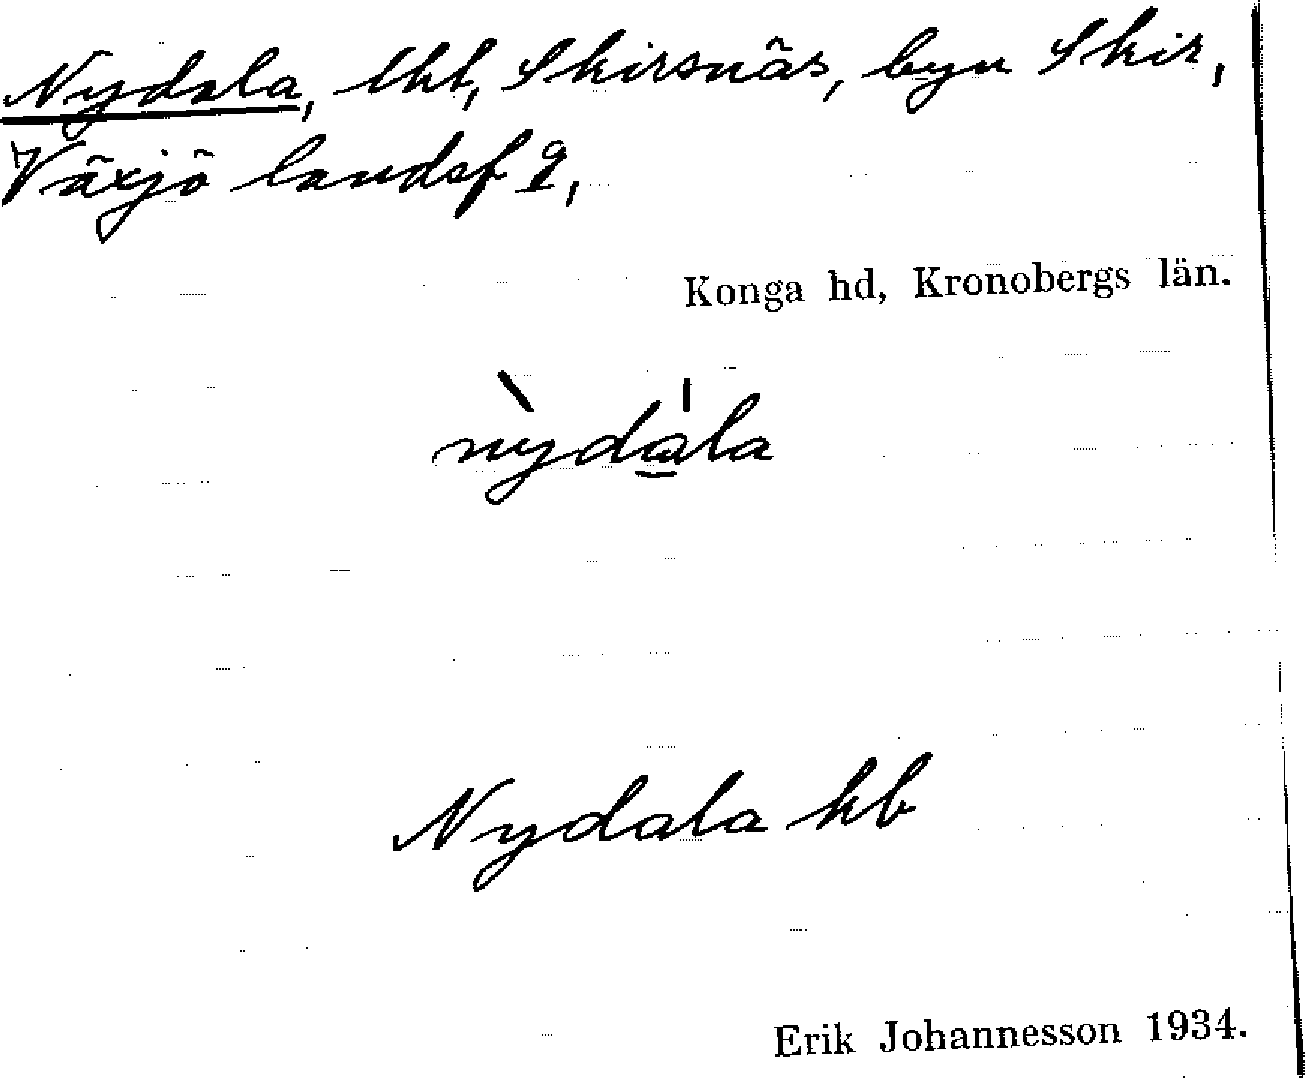 Nydala, lht, Skirsnäs, byn Skir,
Växjö landsf g,
Konga hd, Kronobergs län.
nỳdála
Nydala hb
Erik Johannesson 1934.